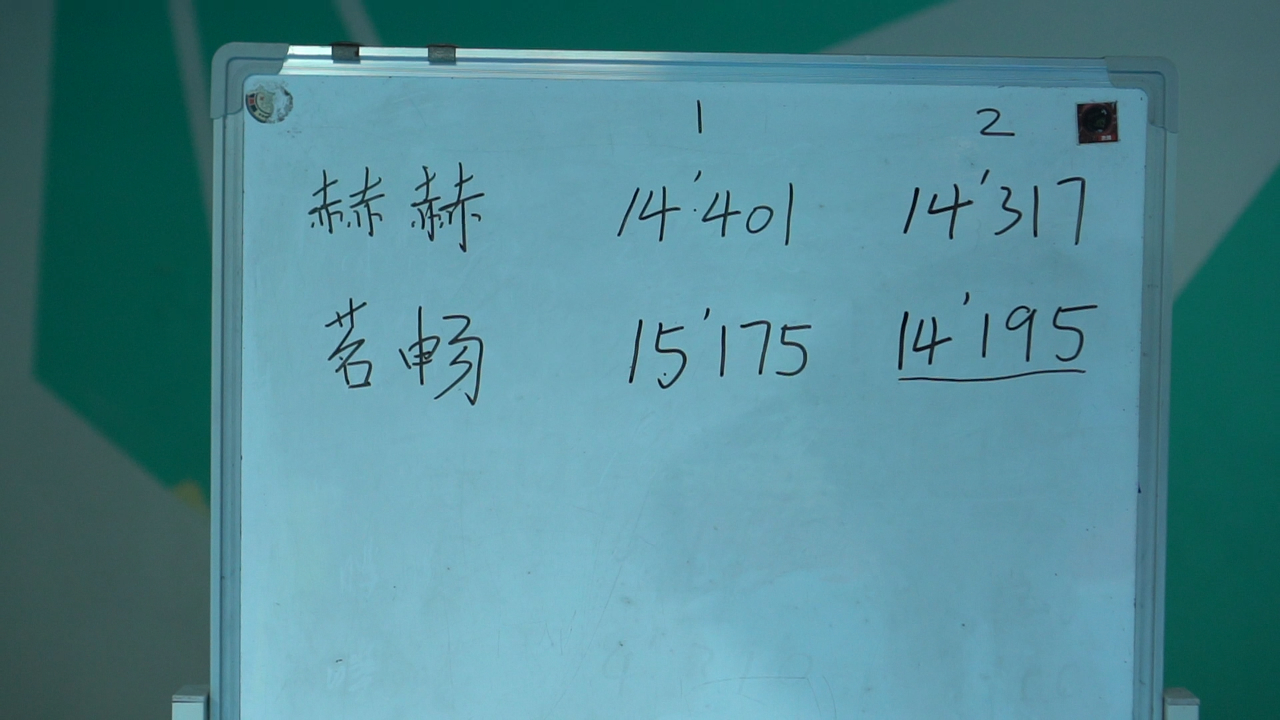 1 2
赫赫 14'401 14'317
茗畅 15'175 14'195